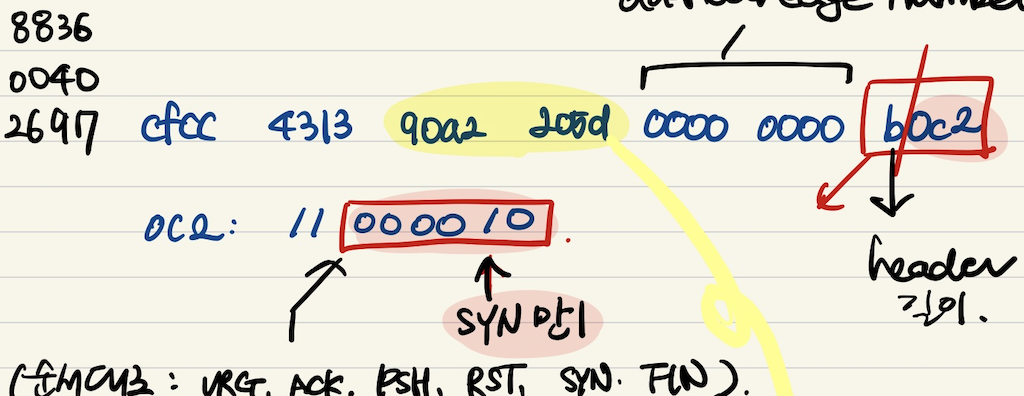 8836
0040
2697 cfcc 4313 90a2 205d 0000 0000 b0c2
0c2: 11 000010
header
길이.
SYN 만 1
(순서대로 : URG, ACK, PSH, RST, SYN. FIN).